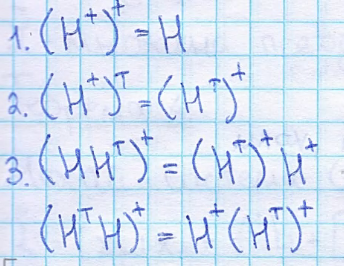 1. (H⁺)⁺ = H
2. (H⁺)ᵀ = (Hᵀ)⁺
3. (HHᵀ)⁺ = (Hᵀ)⁺H⁺
(HᵀH)⁺ = H⁺(Hᵀ)⁺